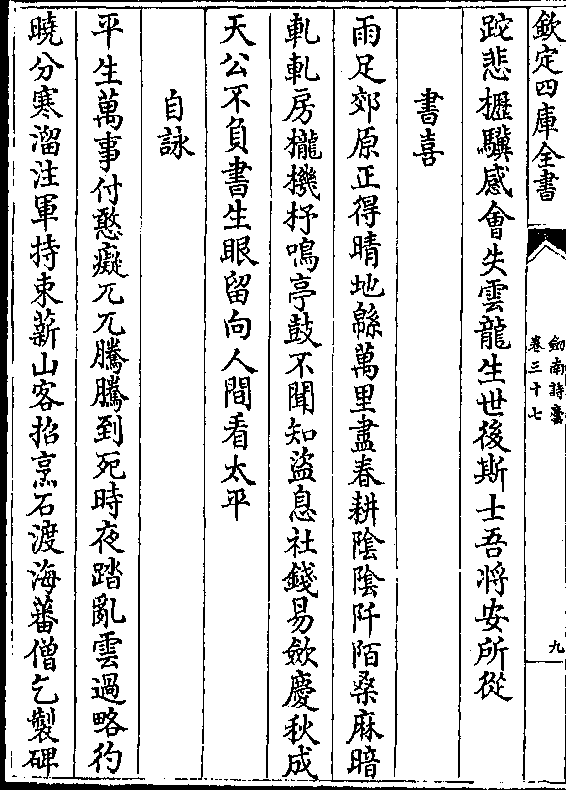 欽定四庫全書
劒南詩藁
卷三十七
九
跎悲櫪驥感會失雲龍生世後斯士吾將安所從
書喜
雨足郊原正得晴地緜萬里盡春耕陰陰阡陌桑麻暗
軋軋房櫳機杼鳴亭鼓不聞知盜息社錢易斂慶秋成
天公不負書生眼留向人間看太平
自詠
平生萬事付憨癡兀兀騰騰到死時夜踏亂雲過略彴
曉分寒溜注軍持束薪山客招烹石渡海蕃僧乞製碑